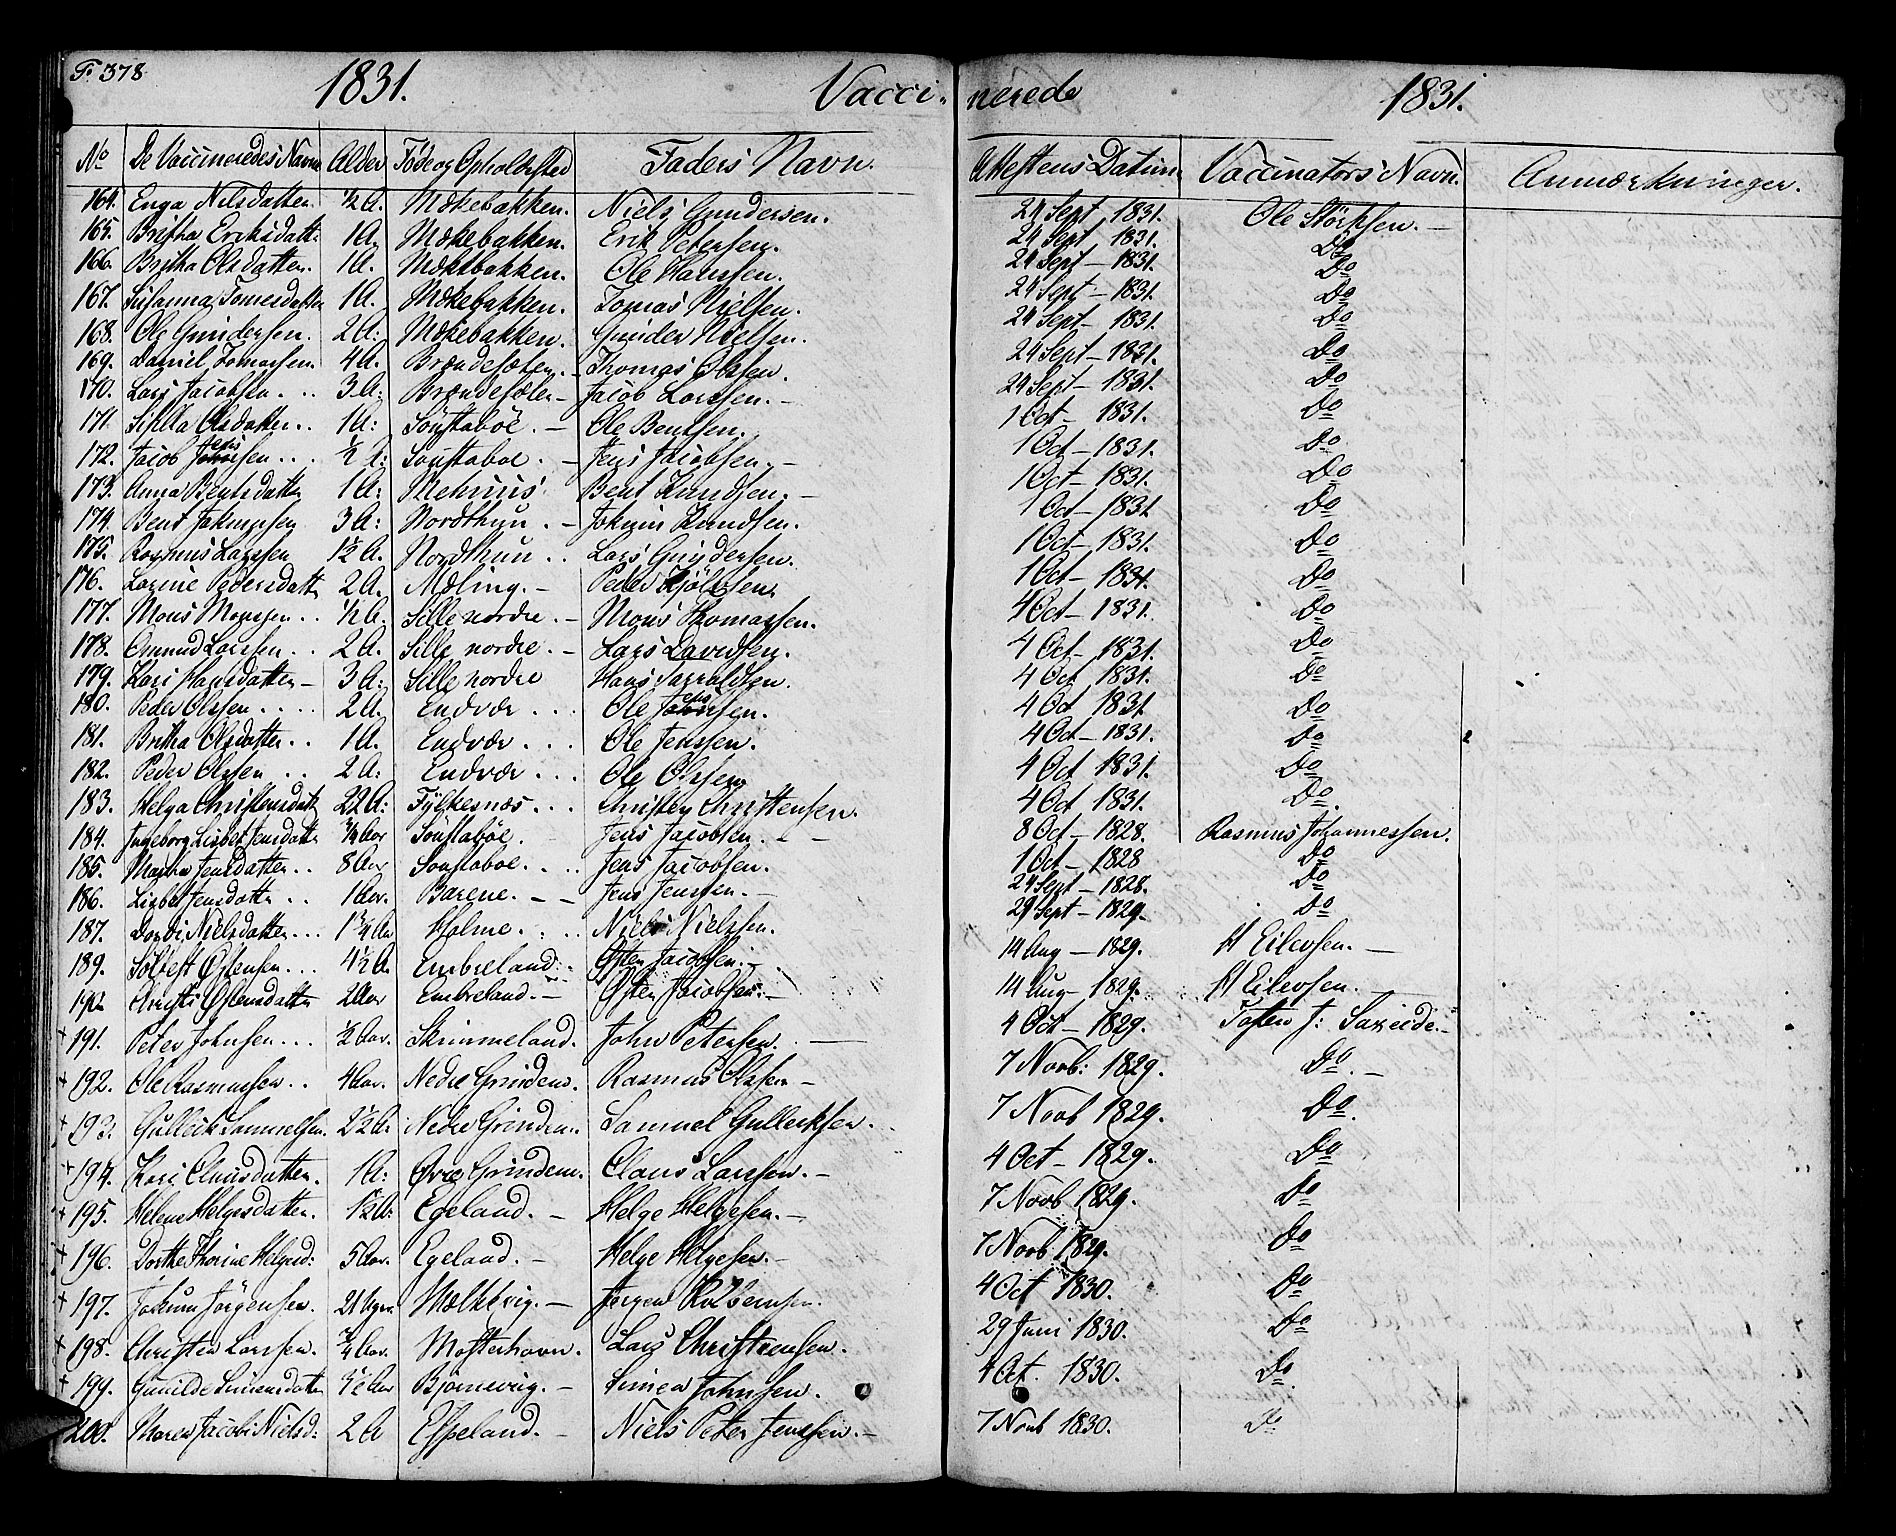 F. 378
1831. Vacci- nerede 1831.
No De Vaccineredes Navn Alder Föde og Opholdsted Faders Navn. Attestens Datum Vaccinators Navn. Anmærkninger.
164. Enga Nilsdatter. ½ A. Mækebakken. Niels Gundersen. 24 Sept 1831. Ole Störksen.
165. Britha Eriksdatt 1 A. Mækebakken. Erik Petersen. 24 Sept 1831. Do
166. Britha Olsdatter. 1 A. Mækebakken. Ole Hanssen. 24 Sept - 1831. Do
167. Susanna Tomesdatter 1 A. Mækebakken. Tomas Nielsen. 24 Sept - 1831. Do
168. Ole Gundersen. 2 A: Mækebakken. Gunder Nielsen. 24 Sept - 1831. Do
169. Daniel Tomassen. 4 A. Brændesæter. Thomas Olssen. 24 Sept - 1831. Do
170. Lars Jacobsen. 3 A: Brændesæter Jacob Larssen. 24 Sept - 1831. Do
171. Sihlla Olsdatter. 1 A: Souftaböe. Ole Bentsen. 1 Oct - 1831. Do
172. Jacob Jenssen. ½ A: Souftaboe. Jens Jacobsen. 1 Oct - 1831. Do
173. Anna Bentsdatter 1 A: Mehuus Bent Knudsen. 1 Oct - 1831. Do
174. Bent Jokumsen 3 A: Nordthun. Jokum Knudsen. 1 Oct - 1831 Do
175. Rasmus Larssen 1½ A. Nordthun Lars Gundersen. 1 Oct - 1831. Do
176. Larine Pedersdatt 2 A. Mæling. Peder Kjölssen. 1 Oct - 1831. Do
177. Mons Monssen ½ A. Sille nordre. Mons Thomassen. 4 Oct - 1831. Do
178. Omund Larssen 2 A. Sille nordre. Lars Davidsen. 4 Oct - 1831. Do
179. Kari Hansdatter 3 A: Sille nordre Hans Saxraldsen. 4 Oct - 1831. Do
180. Peder Olssen 2 A. Endvær Ole Jenssen. 4 Oct 1831. Do
181. Britha Olsdatter 1 A. Endvær Ole Jenssen. 4 Oct - 1831. Do
182. Peder Olssen 2 A: Endvær Ole Olssen 4 Oct 1831. Do
183. Helga Christensdatt 22 A: Fylkesnæs Christen Christensen. 4 Oct 1831. Do
184. Ingeborg Lisbet Jensdatt ¾ Aar Souftaböe. Jens Jacobsen. 8 Oct - 1828. Rasmus Johannessen.
185. Martha Jensdatter 8 Aar Souftaboe. Jens Jacobsen. 1 Oct - 1828 Do
186. Lisbet Jensdatter 1 Aar. Barene. Jens Jenssen. 24 Sept - 1828. Do
187. Dorthi Nielsdatter 1¾ Aar Holme. Niels Nielssen. 29 Sept - 1829. Do
189. Solvest Østensen 4½ A. Embreland Østen Jacobsen. 14 Aug - 1829. H Eilersen.
190. Christi Østensdatter 2 Aar Embreland. Østen Jacobsen. 14 Aug - 1829. H Eilersen.
+ 191. Peter Johnsen ½ Aar. Skrimmeland. John Petersen. 4 Oct - 1829. Tosten J: Saxeide.
+ 192. Ole Rasmussen 4 Aar. Nedre Grinden. Rasmus Olssen 7 Novb: 1829. Do
+ 193. Gullick Samuelsen. 2½ A: Nedre Grinden. Samuel Gullecksen. 7 Novb 1829. Do
+ 194. Kari Clausdatter. 1 A: Øvre Grinden. Claus Larssen. 4 Oct - 1829. Do
+ 195. Helene Helgesdatter. 1½ A: Egeland. Helge Helgesen. 7 Novb 1829. Do
+ 196. Dorthe Thorine Helgesd: 5 Aar. Egeland. Helge Helgesen. 7 Novb 1829. Do
+ 197. Jokum Jörgensen. 21 Uger. Mælkevig. Jörgen Rolsemsen. 4 Oct 1830. Do
+ 198. Christen Larssen. ¾ Aar. Mosterhavn. Lars Christensen. 29 Juni 1830. Do
+ 199. Gunilde Simensdatter 4½ Aar Bjørnevig. Simen Johnsen. 4 Oct. 1830. Do
200. Maren Jacobi Nielsd: 2 A Espeland. Niels Peter Jenssen. 7 Novb 1830. Do